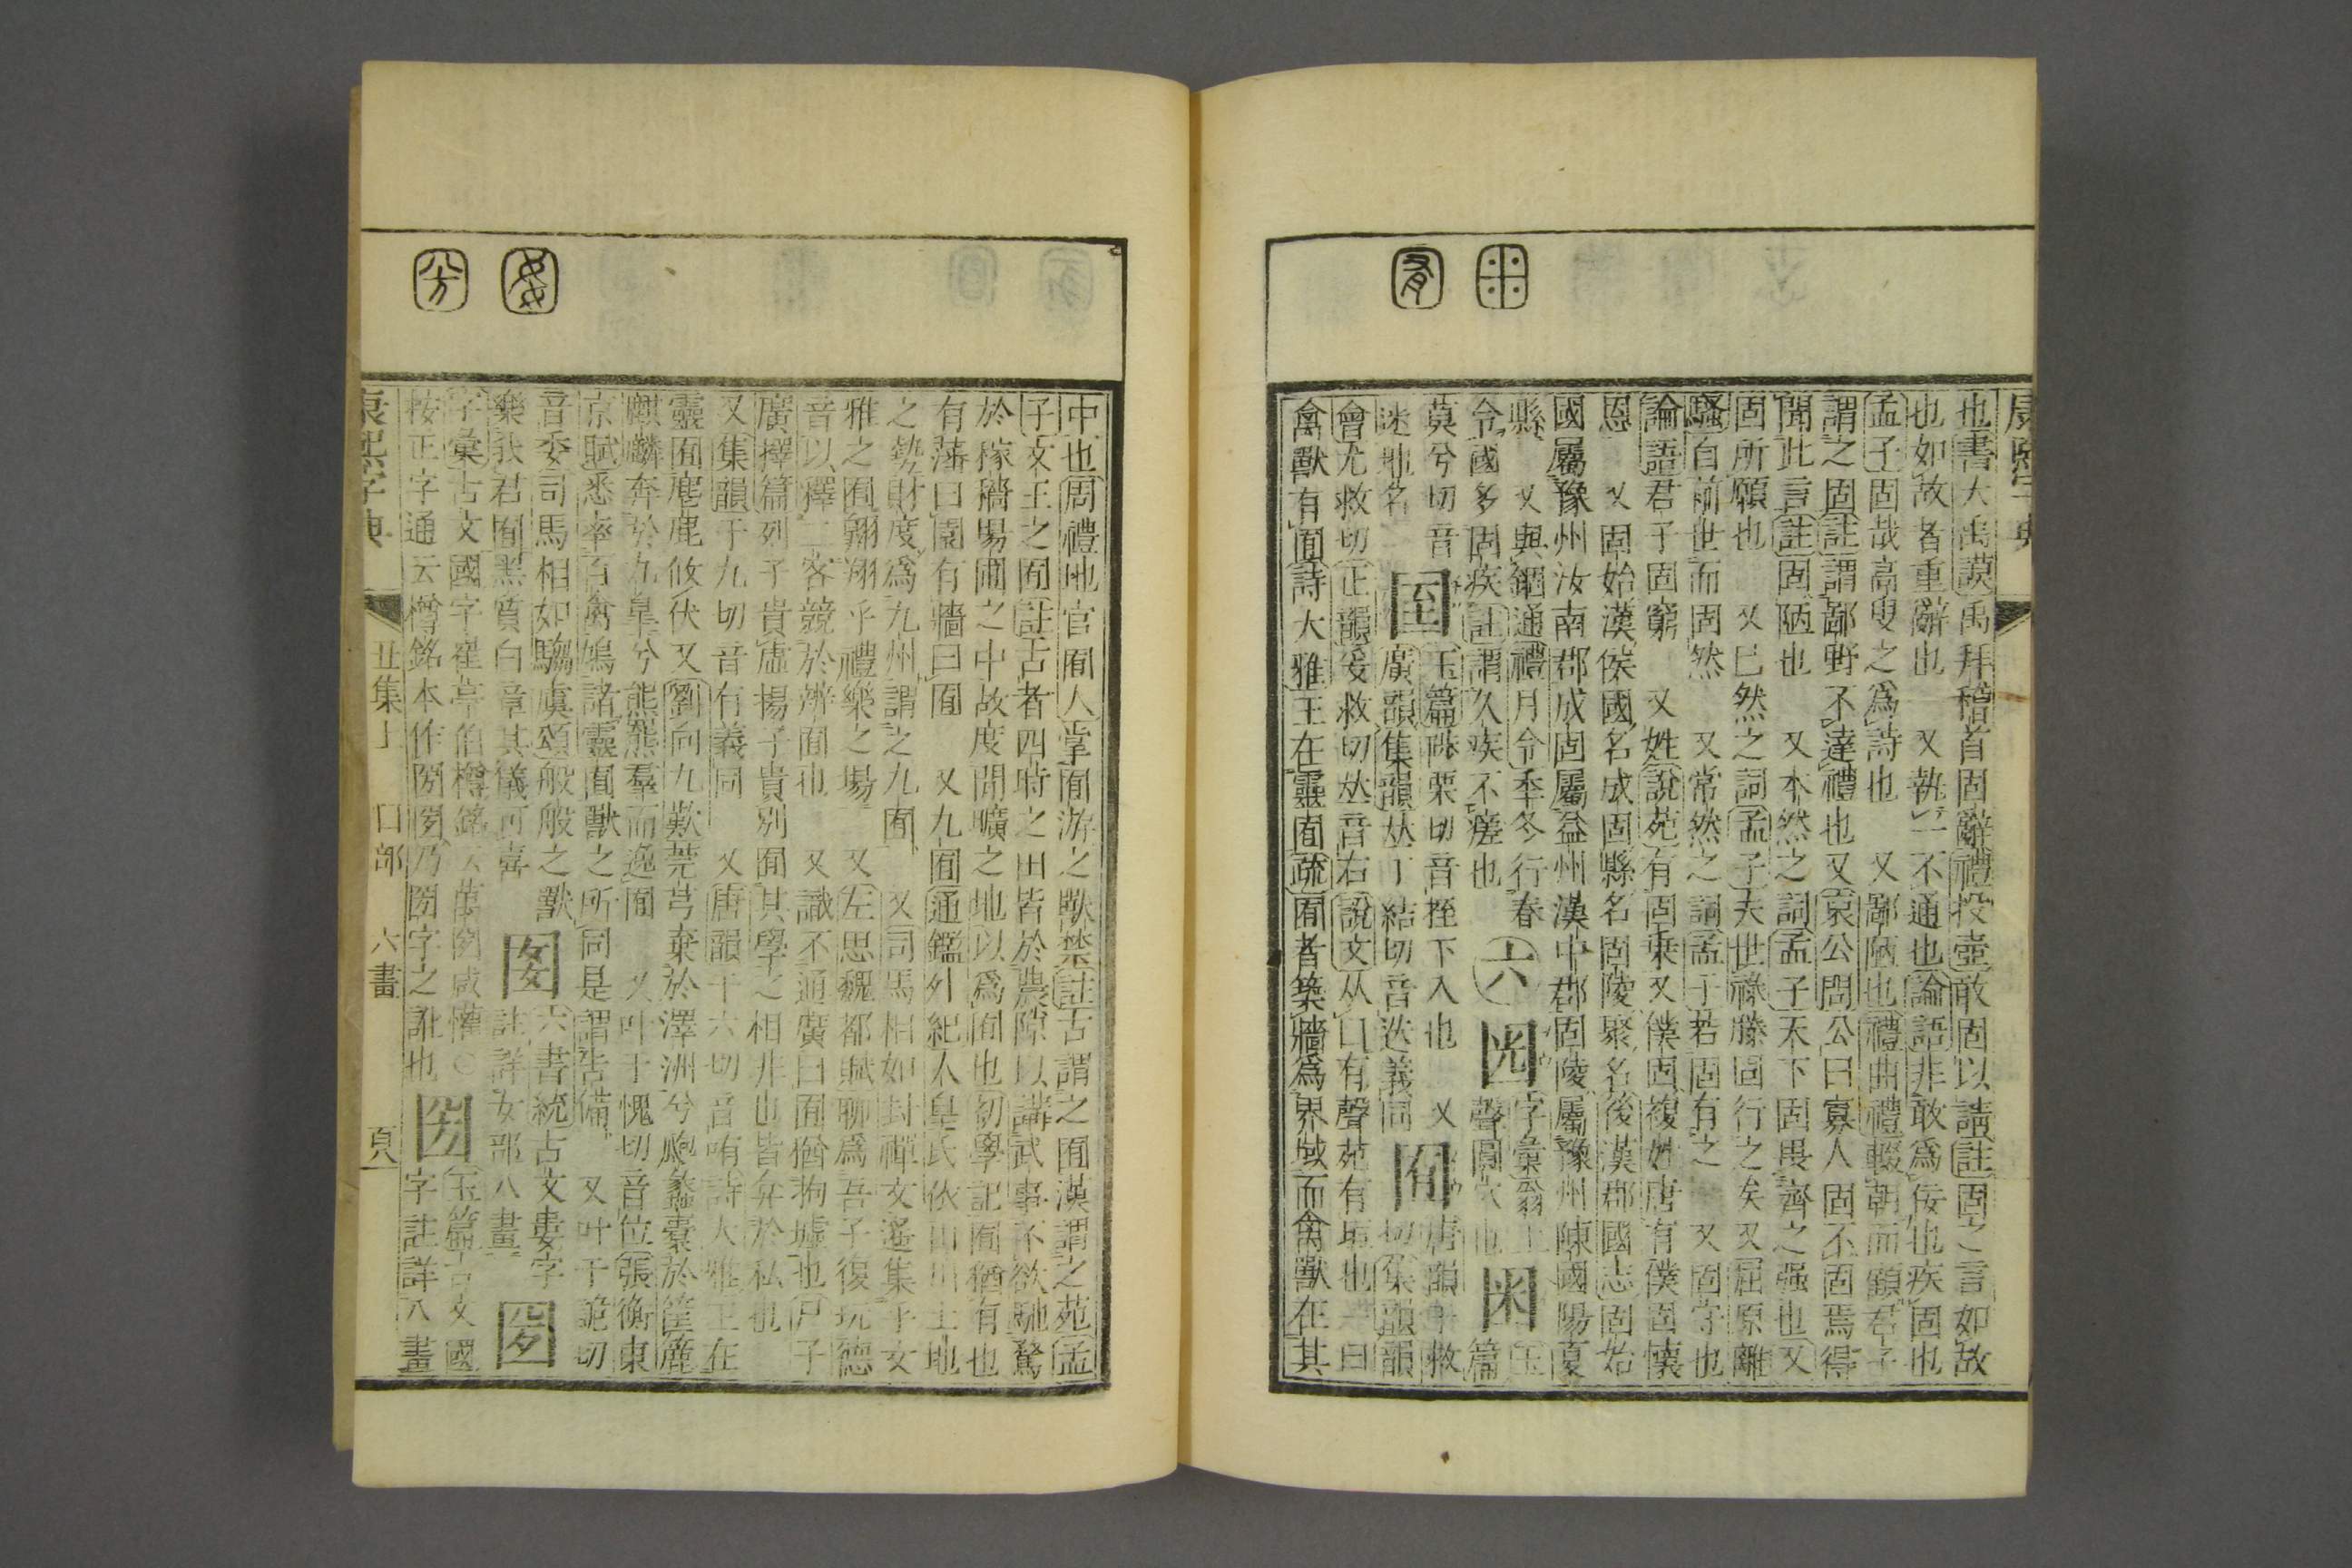 康熙字典
也書大禹謨禹拜稽首固辭禮投壺敢固以請註固之言如故
也如故者重辭也 又執一不通也論語非敢爲佞也疾固也
孟子固哉高叟之爲詩也 又鄙陋也禮曲禮輟朝而顧君子
謂之固註謂鄙野不達禮也又哀公問公曰寡人固不固焉得
聞此言註固陋也 又本然之詞孟子天下固畏齊之强也又
固所願也 又已然之詞孟子夫世祿滕固行之矣又屈原離
騷自前世而固然 又常然之詞孟子若固有之 又固守也
論語君子固窮 又姓說苑有固乗又僕固複姓唐有僕固懐
恩 又固始漢侯國名成固縣名固陵聚名後漢郡國志固始
國屬豫州汝南郡成固屬益州漢中郡固陵屬豫州陳國陽夏
縣 又與錮通禮月令季冬行春
令國多固疾註謂久疾不瘥也
六
𡇢 字彙翁上聲圓 也
囷 玉篇
莫兮切音 迷地名
𡇈 玉篇陟栗切音挃下入也 又廣韻集韻𠀤丁結切音迭義同
囿 唐韻于救切集韻韻會尤救切正韻爰救切𠀤音右說文从囗有聲苑有垣也一曰
禽獸有囿詩大雅王在靈囿疏囿者築牆爲界域而禽獸在其
中也周禮地官囿人掌囿游之獸禁註古謂之囿漢謂之苑孟
子文王之囿註古者四時之田皆於農隙以講武事不欲馳騖
於稼穡場圃之中故度閒曠之地以爲囿也初學記囿猶有也
有藩曰園有牆曰囿 又九囿通鑑外紀人皇氏依山川土地
之勢財度爲九州謂之九囿 又司馬相如封禪文遙集乎文
雅之囿翱翔乎禮樂之場 又左思魏都賦聊爲吾子復玩德
音以釋二客競於辨囿也 又識不通廣曰囿猶拘墟也尸子
廣擇篇列子貴虛揚子貴別囿其學之相非也皆弇於私也
又集韻于九切音有義同 又唐韻于六切音哊詩大雅王在
靈囿麀鹿攸伏又劉向九歎莞芎棄於澤洲兮瓟蠡蠹於筐簏
麒麟奔於九臯兮熊羆羣而逸囿 又叶于愧切音位張衡東
京賦悉率百禽鳩諸靈囿獸之所同是謂告備 又叶于詭切
音委司馬相如騶虞頌般般之獸
樂我君囿黑質白章其儀可喜
𡇥 六書統古文妻字註詳女部八畫
𡇏 字彙古文國字崔亭伯樽銘
按正字通云樽銘本作圀圀乃圀字之訛也
𡇎 玉篇古文國字註詳八畫
康熙字典
丑集上 口部 六畫 頁